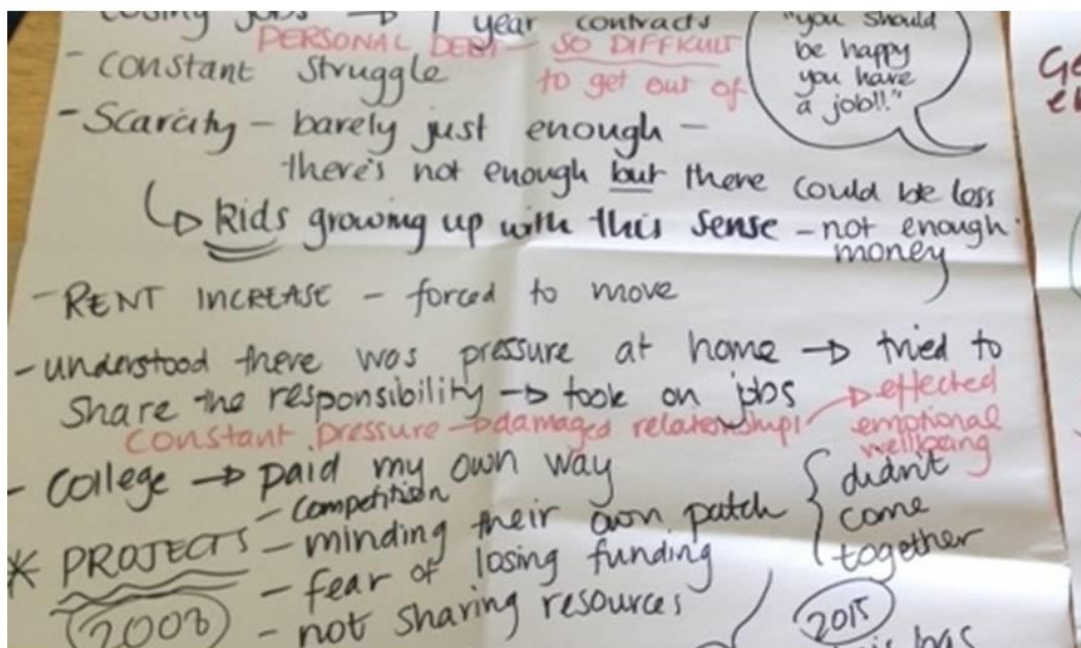 losing jobs → 1 year contracts
PERSONAL DEBT - SO DIFFICULT
to get out of
"you should
be happy
you have
a job!!"
- constant struggle
- Scarcity - barely just enough -
there's not enough but there could be loss
↳ kids growing up with this sense - not enough
money
- RENT INCREASE - forced to move
- understood there was pressure at home → tried to
share the responsibility → took on jobs
constant pressure → damaged relationships → effected
emotional
wellbeing
- College → paid my own way
* PROJECTS - Competition
- minding their own patch
- fear of losing funding
- not sharing resources
didn't
come
together
2008
2015
has